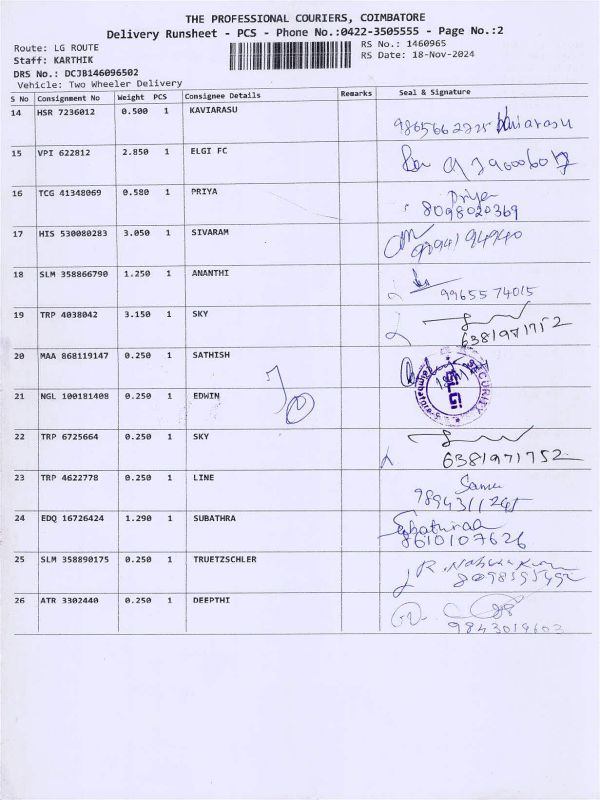 THE PROFESSIONAL COURIERS, COIMBATORE
Delivery Runsheet - PCS - Phone No.:0422-3505555 - Page No.:2
Route: LG ROUTE RS No.: 1460965
Staff: KARTHIK RS Date: 18-Nov-2024
DRS No.: DCJB146096502
Vehicle: Two Wheeler Delivery
S No Consignment No Weight PCS Consignee Details Remarks Seal & Signature
14 HSR 7236012 0.500 1 KAVIARASU
Kaviarasu
15 VPI 622812 2.850 1 ELGI FC
16 TCG 41348069 0.580 1 PRIYA
Priya
8098020369
17 HIS 530080283 3.050 1 SIVARAM
18 SLM 358866790 1.250 1 ANANTHI
99655 74015
19 TRP 4038042 3.150 1 SKY
6381971752
20 MAA 868119147 0.250 1 SATHISH
SECURITY
ELGi
21 NGL 100181408 0.250 1 EDWIN
22 TRP 6725664 0.250 1 SKY
6381971752
23 TRP 4622778 0.250 1 LINE
24 EDQ 16726424 1.290 1 SUBATHRA
8610107626
25 SLM 358890175 0.250 1 TRUETZSCHLER
26 ATR 3302440 0.250 1 DEEPTHI
9843019603